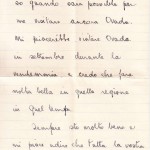 so quando sarà possibile per
me visitare ancora Ovada.
Mi piacerebbe visitare Ovada
in settembre durante la
vendemmia e credo che fare
molto bella in quella regione
in quel tempo.
Sempre sto molto bene e
mi pare dire che tutta la vostra